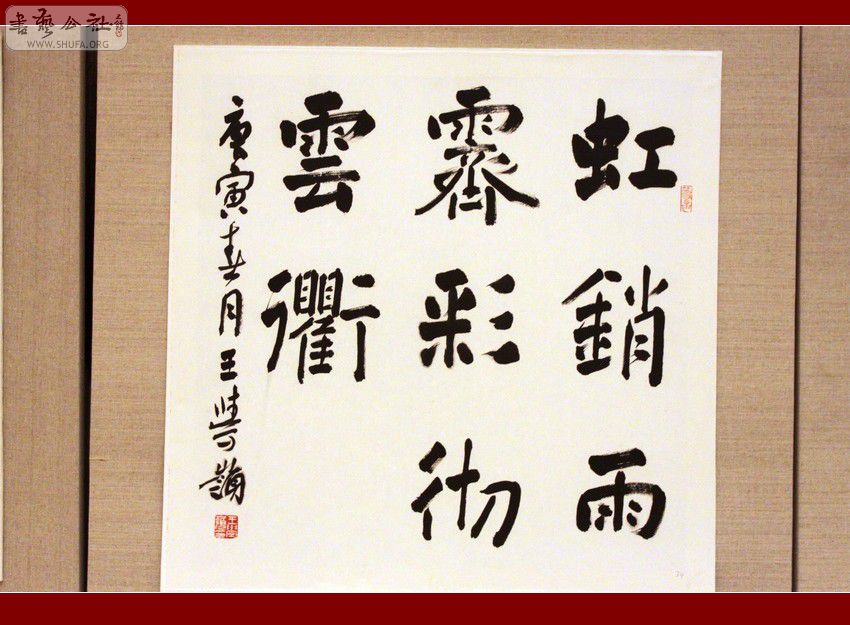 虹銷雨
霽彩彻
雲衢
庚寅春月王
書藝公社
WWW.SHUFA.ORG